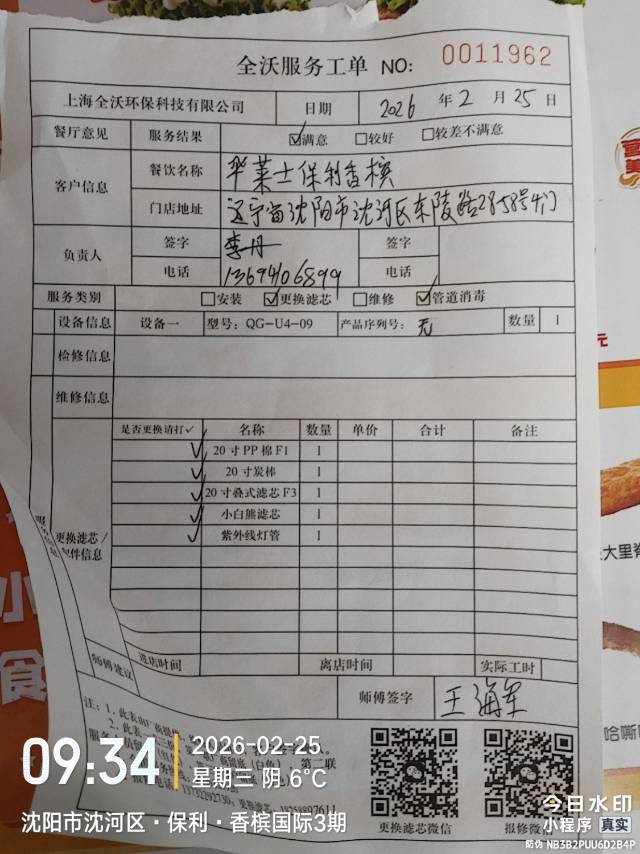 全沃服务工单 NO: 0011962
上海全沃环保科技有限公司 日期 2026 年 2 月 25 日
餐厅意见 服务结果 ☑满意 □较好 □较差不满意
客户信息 餐饮名称 华莱士保利香槟
门店地址 辽宁省沈阳市沈河区东陵路28-58号4门
负责人 签字 李丹 签字
电话 13694106899 电话
服务类别 □安装 ☑更换滤芯 □维修 ☑管道消毒
设备信息 设备一 型号: QG-U4-09 产品序列号: 无 数量 1
检修信息
维修信息
是否更换请打✓ 名称 数量 单价 合计 备注
✓ 20寸PP棉F1 1
✓ 20寸炭棒 1
✓ 20寸叠式滤芯F3 1
✓ 小白熊滤芯 1
✓ 紫外线灯管 1
更换滤芯/
配件信息
师傅建议 进店时间 离店时间 实际工时
师傅签字 王海军
注: 1. 此表由厂商
2. 此表
第二联
更换滤芯微信 报修微信
09:34 2026-02-25
星期三 阴 6°C
沈阳市沈河区·保利·香槟国际3期
今日水印
小程序 真实
防伪 NB3B2PUU6D2B4P
元
大里脊
哈嘶
小
食